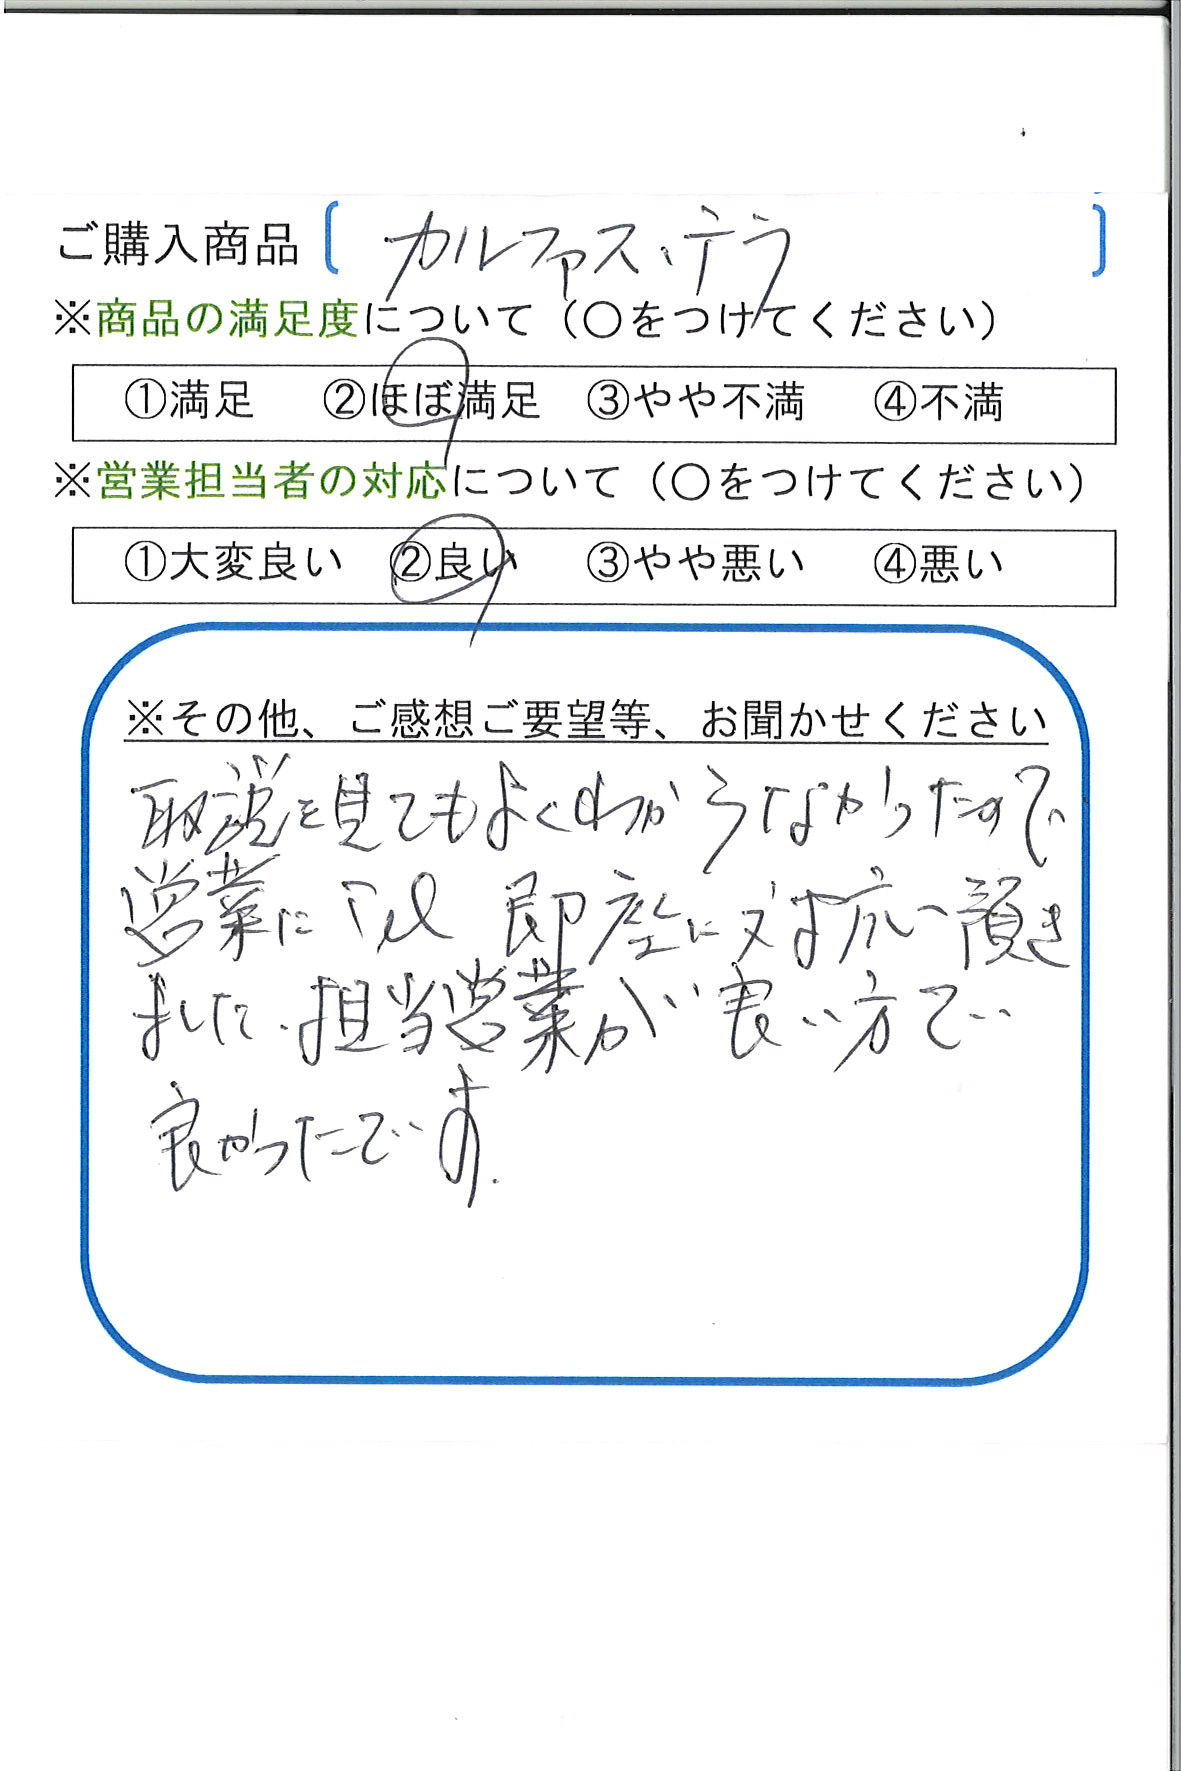 ご購入商品 [ カルファス、テラ ]
※商品の満足度について（○をつけてください）
①満足 ②ほぼ満足 ③やや不満 ④不満
※営業担当者の対応について（○をつけてください）
①大変良い ②良い ③やや悪い ④悪い
※その他、ご感想ご要望等、お聞かせください
取説を見てもよくわからなかったので
営業にTEL 即座に対応頂き
ました。担当営業が良い方で
良かったです.